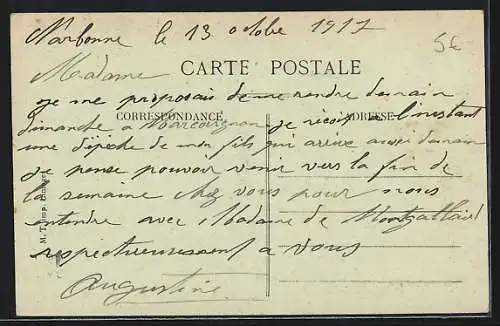 Narbonne le 13 octobre 1917
5€
Madame
CARTE POSTALE
je me proposais de me rendre demain
CORRESPONDANCE
ADRESSE
dimanche à Marcorignan je reçois l'instant
une dépêche de mon fils qui arrive aussi demain
je pense pouvoir venir vers la fin de
la semaine chez vous pour nous
entendre avec Madame de
respectueusement à vous
Augustine